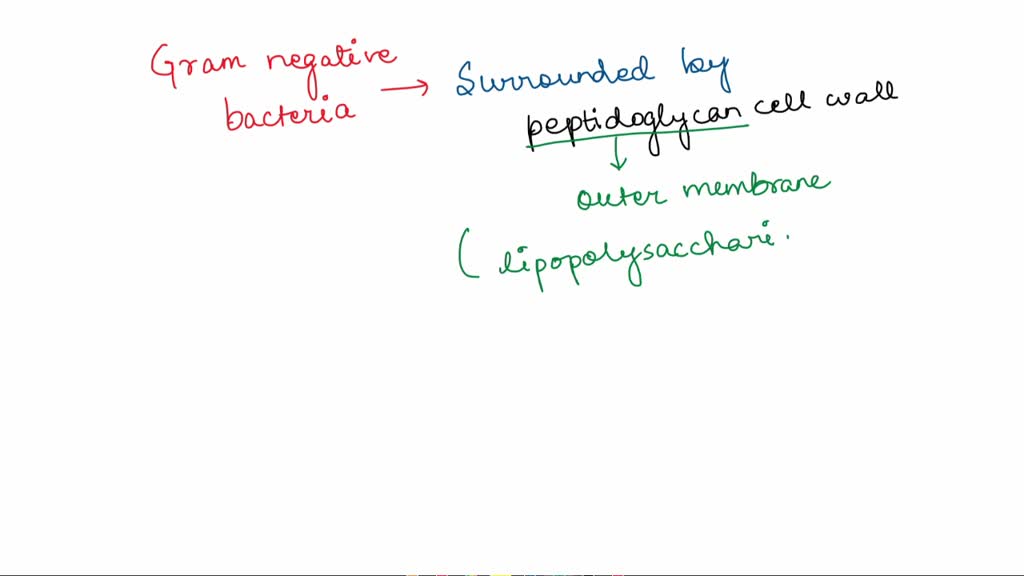 Gram negative
bacteria → Surrounded by
peptidoglycan cell wall
↓
outer membrane
( lipopolysacchari.